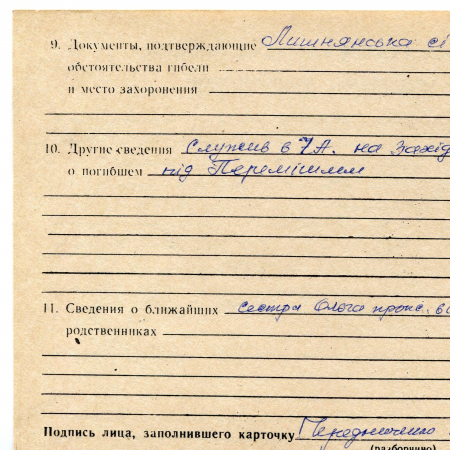 9. Документы, подтверждающие Лишнянська сі
обстоятельства гибели
и место захоронения
10. Другие сведения Служив в 7 А. на Захід
о погибшем під Перемишлем
11. Сведения о ближайших сестра Ольга прож. в
родственниках
Подпись лица, заполнившего карточку
(разборчиво)